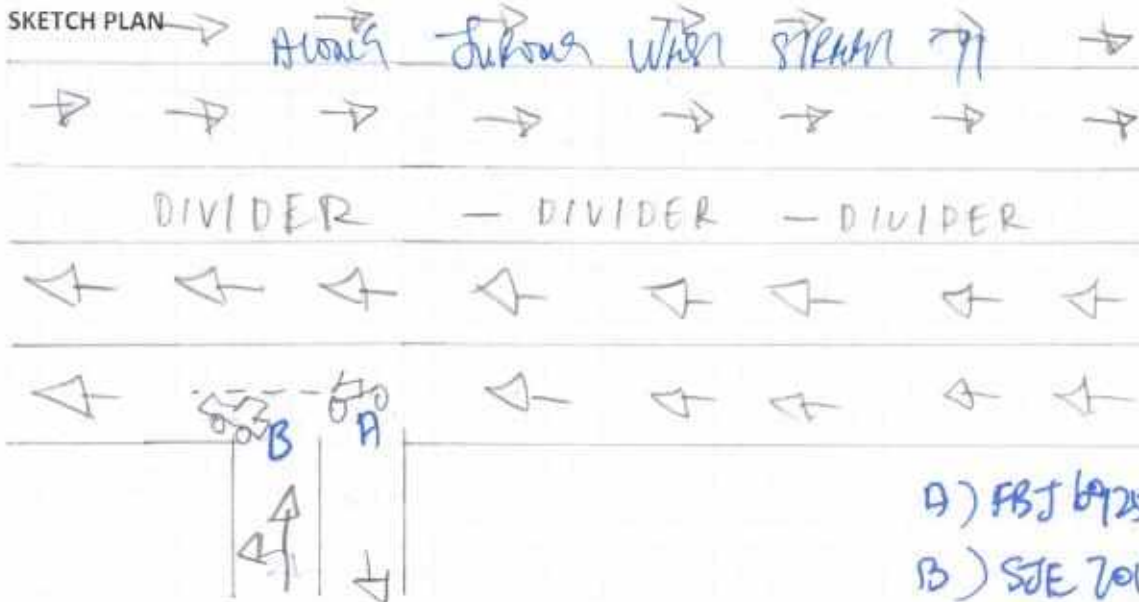 SKETCH PLAN
ALONG JURONG WEST STREET 91
DIVIDER - DIVIDER - DIVIDER
B A
A) FBJ 6925
B) SJE 701